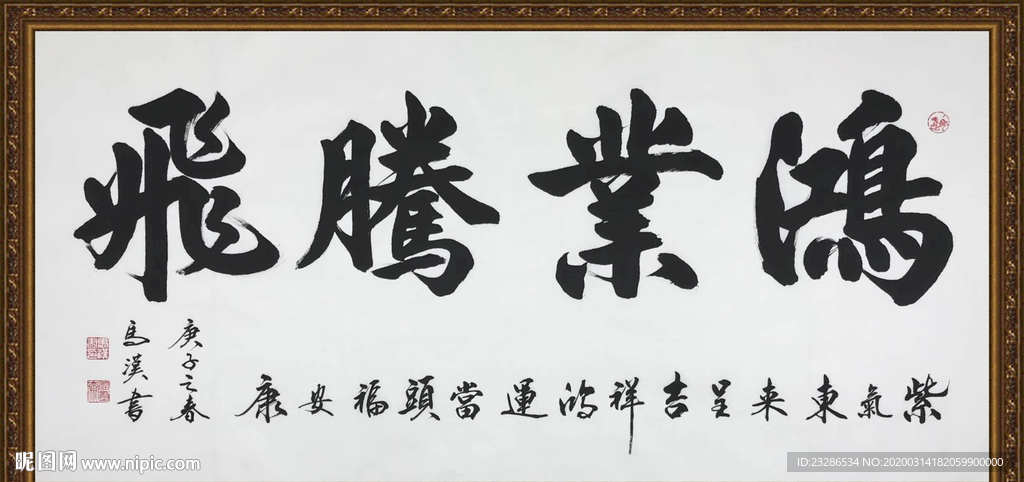 鴻業騰飛
紫氣東来呈吉祥鴻運當頭福安康
庚子之春
馬漢書
昵图网 www.nipic.com
ID:23286534 NO:20200314182059900000